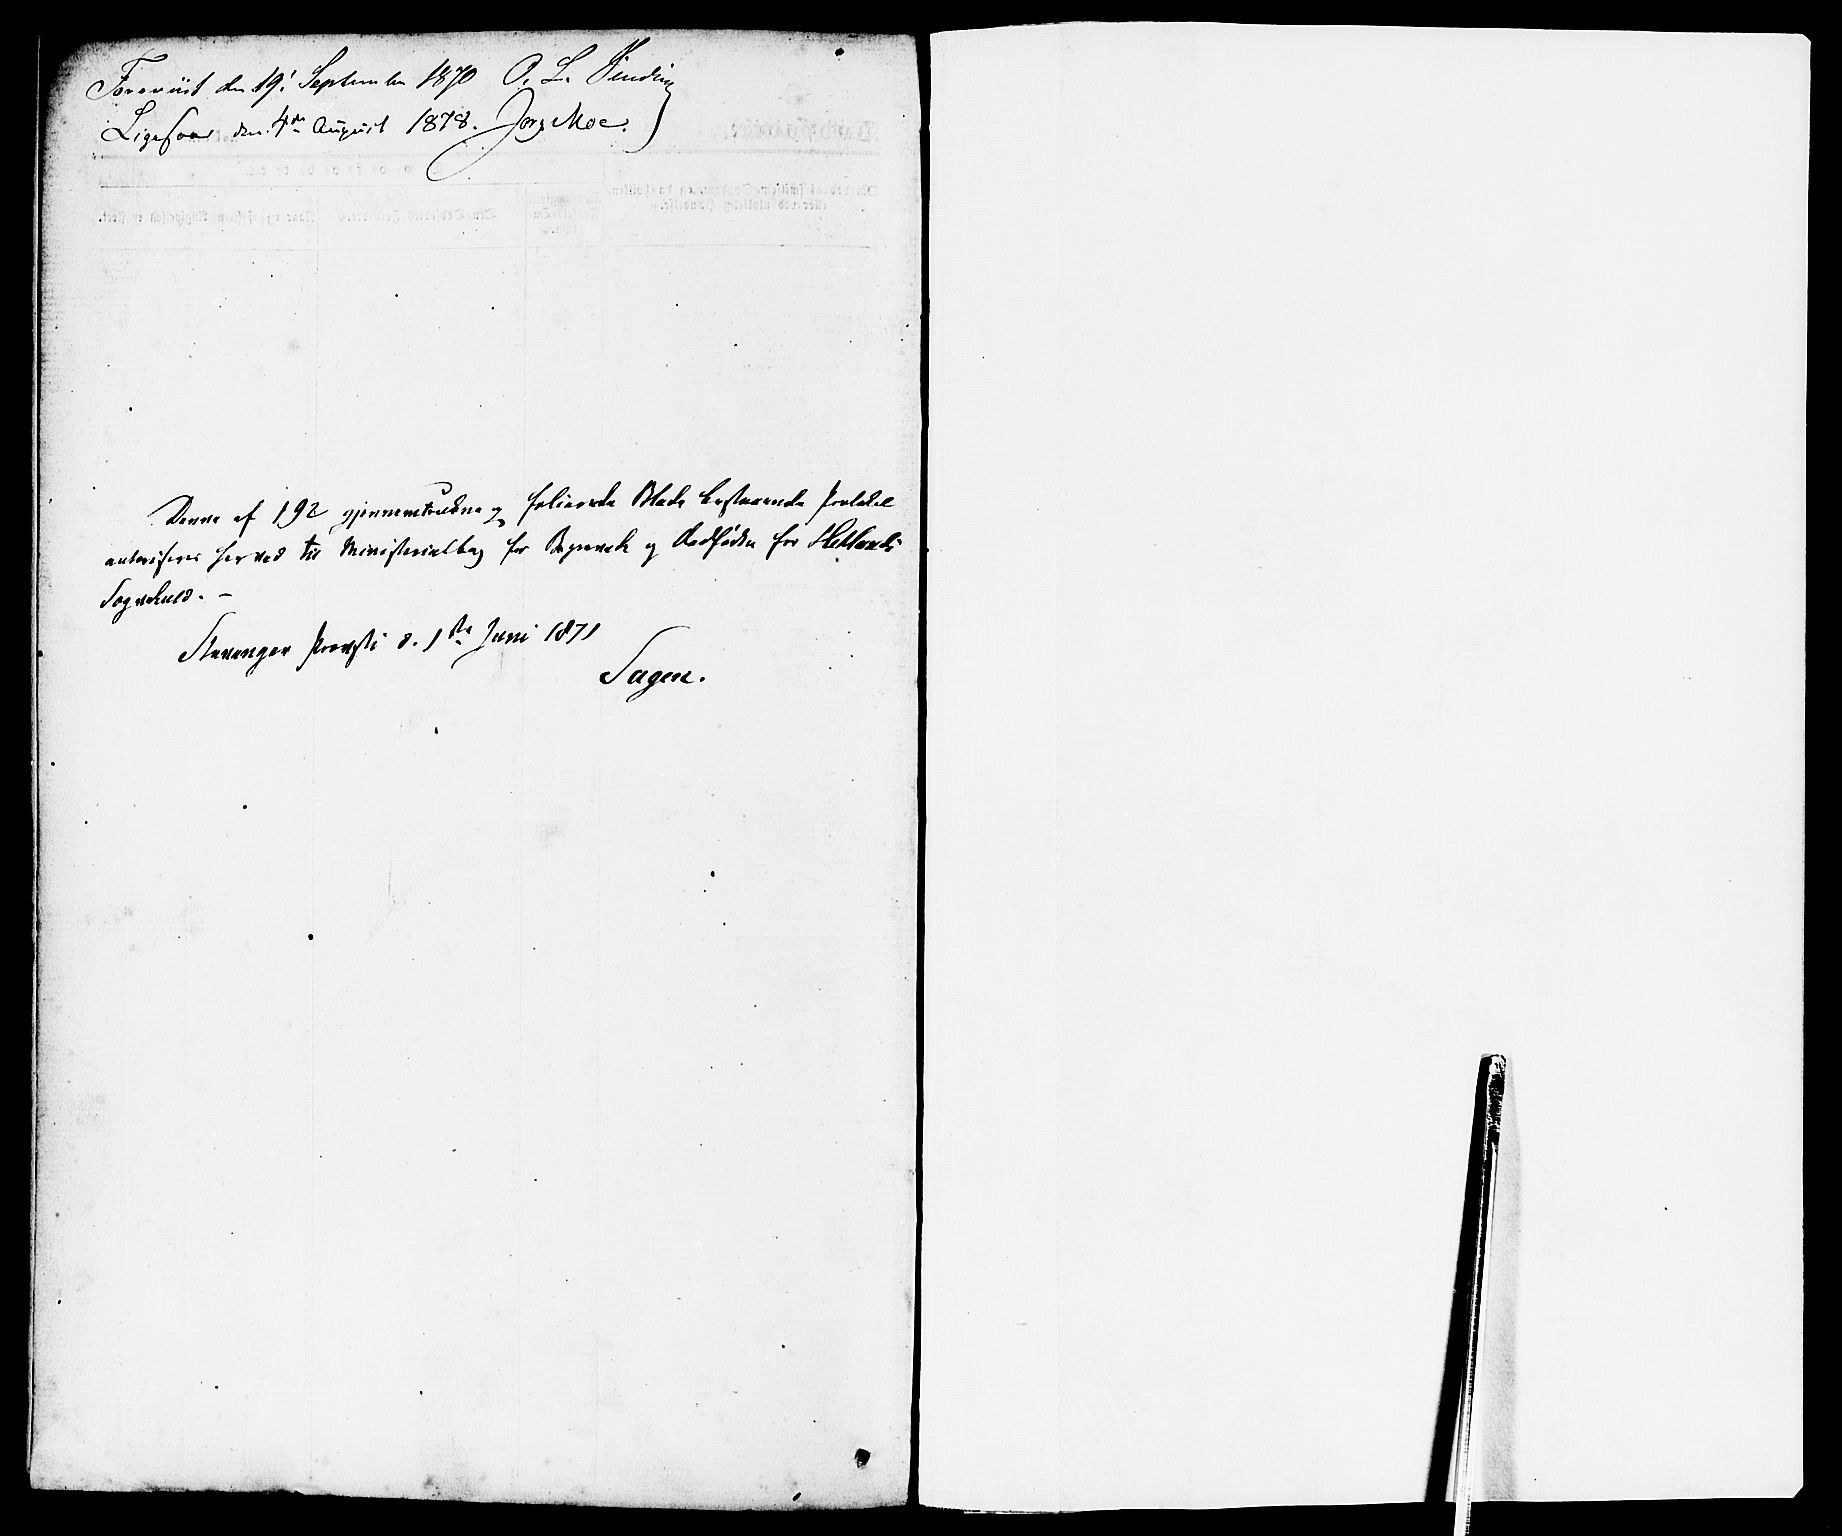 Foreviist den 19' September 1870 O. L. Sinding
Ligesaa den 4de August 1878. Jørg Moe.
Denne af 192 gjennemtrukne og folierede Blade bestaaende Protokol
autoriseres herved til Ministerialbog for Begravede og Dødfødte for Hetlands
Sognekald. -
Stavanger Provsti d. 1ste Juni 1871
Sagen.